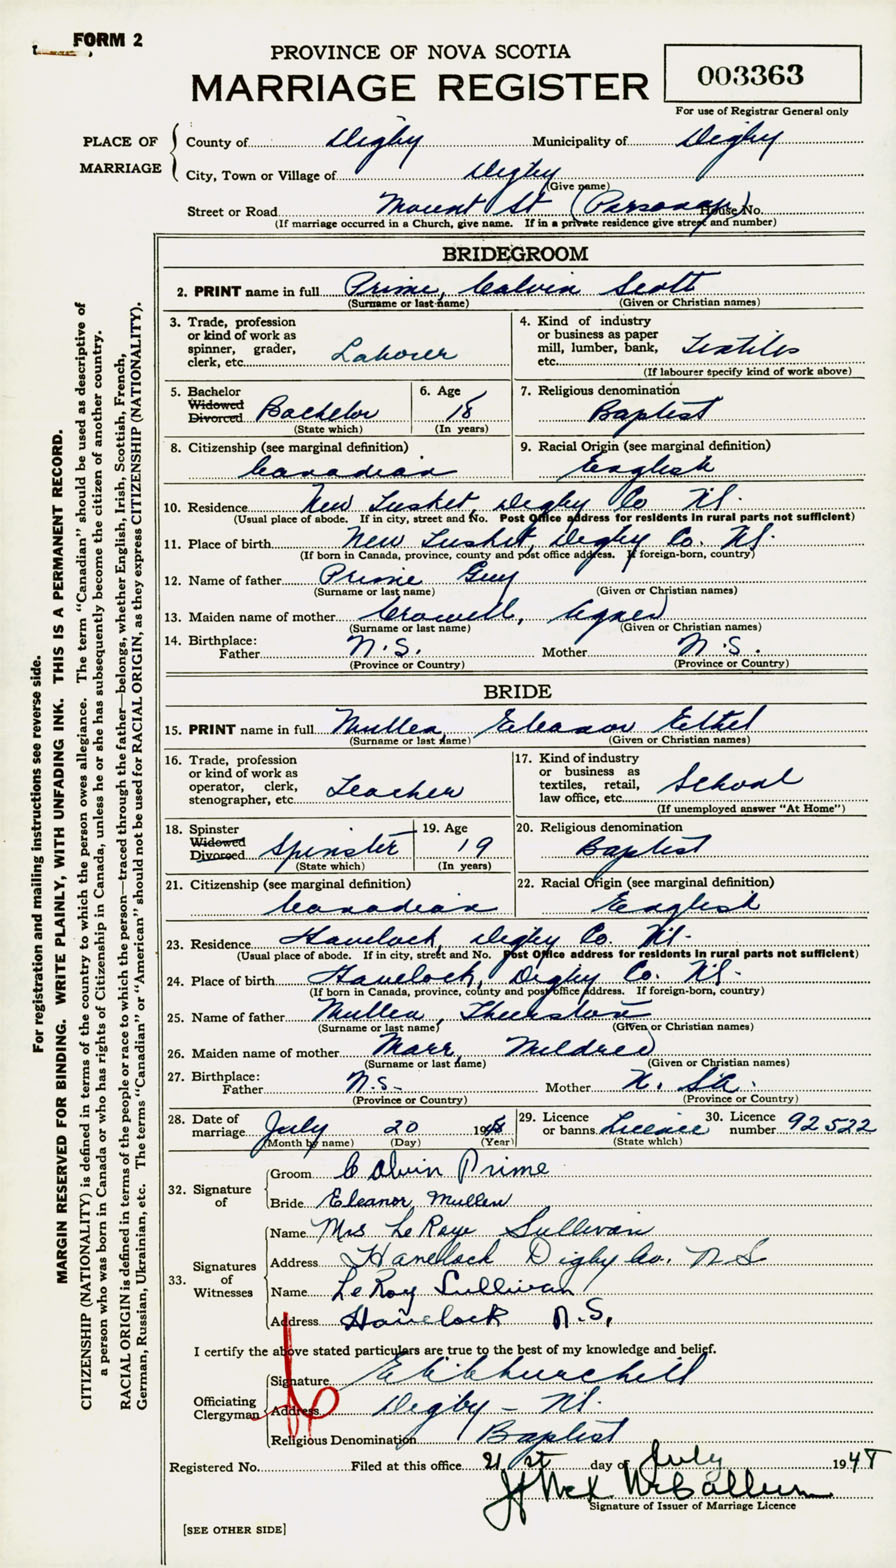 FORM 2
PROVINCE OF NOVA SCOTIA
MARRIAGE REGISTER
003363
For use of Registrar General only
PLACE OF MARRIAGE
County of Digby Municipality of Digby
City, Town or Village of Digby
(Give name)
Street or Road Mount St (Parsonage) House No.
(If marriage occurred in a Church, give name. If in a private residence give street and number)
BRIDEGROOM
2. PRINT name in full Prime, Calvin Scott
(Surname or last name) (Given or Christian names)
3. Trade, profession or kind of work as spinner, grader, clerk, etc. Laborer
4. Kind of industry or business as paper mill, lumber, bank, etc. Textiles
(If labourer specify kind of work above)
5. Bachelor Widowed Divorced Bachelor
(State which)
6. Age 18
(In years)
7. Religious denomination
Baptist
8. Citizenship (see marginal definition)
Canadian
9. Racial Origin (see marginal definition)
English
10. Residence New Tusket, Digby Co NS.
(Usual place of abode. If in city, street and No. Post Office address for residents in rural parts not sufficient)
11. Place of birth New Tusket, Digby Co. NS.
(If born in Canada, province, county and post office address. If foreign-born, country)
12. Name of father Prime Guy
(Surname or last name) (Given or Christian names)
13. Maiden name of mother Crowell, Agnes
(Surname or last name) (Given or Christian names)
14. Birthplace:
Father N.S. Mother N.S.
(Province or Country) (Province or Country)
BRIDE
15. PRINT name in full Mullen, Eleanor Ethel
(Surname or last name) (Given or Christian names)
16. Trade, profession or kind of work as operator, clerk, stenographer, etc. Teacher
17. Kind of industry or business as textiles, retail, law office, etc. School
(If unemployed answer "At Home")
18. Spinster Widowed Divorced Spinster
(State which)
19. Age 19
(In years)
20. Religious denomination
Baptist
21. Citizenship (see marginal definition)
Canadian
22. Racial Origin (see marginal definition)
English
23. Residence Havelock, Digby Co. NS.
(Usual place of abode. If in city, street and No. Post Office address for residents in rural parts not sufficient)
24. Place of birth Havelock, Digby Co. NS.
(If born in Canada, province, county and post office address. If foreign-born, country)
25. Name of father Mullen, Thurston
(Surname or last name) (Given or Christian names)
26. Maiden name of mother Marr, Mildred
(Surname or last name) (Given or Christian names)
27. Birthplace:
Father N.S. Mother
(Province or Country) (Province or Country)
28. Date of marriage July 20 19
(Month by name) (Day) (Year)
29. Licence or banns Licence
(State which)
30. Licence number 92522
32. Signature of
Groom Calvin Prime
Bride Eleanor Mullen
33. Signatures of Witnesses
Name Mrs LeRoye Sullivan
Address Havellock Digby Co. N S
Name LeRoy Sullivan
Address Havelock N.S.
I certify the above stated particulars are true to the best of my knowledge and belief.
Officiating Clergyman
Signature Churchill
Address Digby - NS.
Religious Denomination Baptist
Registered No. Filed at this office 21st day of July 1948
McCallum
Signature of Issuer of Marriage Licence
[SEE OTHER SIDE]
For registration and mailing instructions see reverse side.
MARGIN RESERVED FOR BINDING. WRITE PLAINLY, WITH UNFADING INK. THIS IS A PERMANENT RECORD.
CITIZENSHIP (NATIONALITY) is defined in terms of the country to which the person owes allegiance. The term "Canadian" should be used as descriptive of
a person who was born in Canada or who has rights of Citizenship in Canada, unless he or she has subsequently become the citizen of another country.
RACIAL ORIGIN is defined in terms of the people or race to which the person—traced through the father—belongs, whether English, Irish, Scottish, French,
German, Russian, Ukrainian, etc. The terms "Canadian" or "American" should not be used for RACIAL ORIGIN, as they express CITIZENSHIP (NATIONALITY).